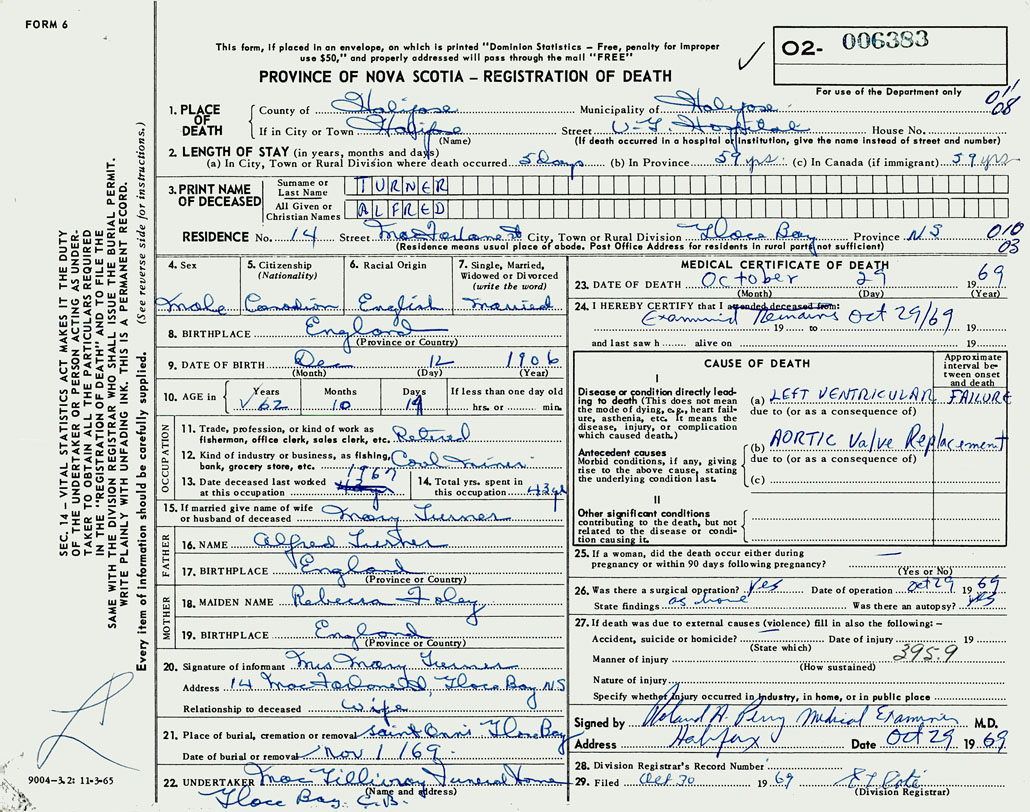 FORM 6
This form, if placed in an envelope, on which is printed "Dominion Statistics – Free, penalty for improper
use $50," and properly addressed will pass through the mail "FREE"
PROVINCE OF NOVA SCOTIA – REGISTRATION OF DEATH
02- 006383
For use of the Department only
011
08
1. PLACE OF DEATH
County of Halifax Municipality of Halifax
If in City or Town Halifax Street V-G. Hospital House No.
(Name) (If death occurred in a hospital or institution, give the name instead of street and number)
2. LENGTH OF STAY (in years, months and days)
(a) In City, Town or Rural Division where death occurred 5 Days (b) In Province 59 yrs. (c) In Canada (if immigrant) 59 yrs
3. PRINT NAME OF DECEASED
Surname or Last Name TURNER
All Given or Christian Names ALFRED
RESIDENCE No. 14 Street MacFarlane St City, Town or Rural Division Glace Bay Province NS
010
03
(Residence means usual place of abode. Post Office Address for residents in rural parts not sufficient)
4. Sex
Male
5. Citizenship
(Nationality)
Canadian
6. Racial Origin
English
7. Single, Married,
Widowed or Divorced
(write the word)
Married
8. BIRTHPLACE England
(Province or Country)
9. DATE OF BIRTH Dec 12 1906
(Month) (Day) (Year)
10. AGE in Years 62 Months 10 Days 19 If less than one day old
hrs. or min.
OCCUPATION
11. Trade, profession, or kind of work as
fisherman, office clerk, sales clerk, etc. Retired
12. Kind of industry or business, as fishing,
bank, grocery store, etc. Coal miner
13. Date deceased last worked
at this occupation 1967
14. Total yrs. spent in
this occupation 43 yrs
15. If married give name of wife
or husband of deceased Mary Turner
FATHER
16. NAME Alfred Turner
17. BIRTHPLACE England
(Province or Country)
MOTHER
18. MAIDEN NAME Rebecca Foley
19. BIRTHPLACE England
(Province or Country)
20. Signature of informant Mrs Mary Turner
Address 14 MacFarlane St, Glace Bay NS
Relationship to deceased wife
21. Place of burial, cremation or removal Saint Ann's Glace Bay
Date of burial or removal Nov 1/69.
22. UNDERTAKER MacGillivray Funeral Home
(Name and address)
Glace Bay, C.B.
MEDICAL CERTIFICATE OF DEATH
23. DATE OF DEATH October 29 1969
(Month) (Day) (Year)
24. I HEREBY CERTIFY that I attended deceased from:
Examined Remains Oct 29/69
19 to 19
and last saw h alive on 19
CAUSE OF DEATH
Approximate
interval be-
tween onset
and death
I
Disease or condition directly lead-
ing to death (This does not mean
the mode of dying, e.g., heart fail-
ure, asthenia, etc. It means the
disease, injury, or complication
which caused death.)
(a) LEFT VENTRICULAR FAILURE
due to (or as a consequence of)
Antecedent causes
Morbid conditions, if any, giving
rise to the above cause, stating
the underlying condition last.
(b) AORTIC Valve Replacement
due to (or as a consequence of)
(c)
II
Other significant conditions
contributing to the death, but not
related to the disease or condi-
tion causing it.
25. If a woman, did the death occur either during
pregnancy or within 90 days following pregnancy?
(Yes or No)
26. Was there a surgical operation? Yes Date of operation Oct 29 1969
State findings as above Was there an autopsy? yes
27. If death was due to external causes (violence) fill in also the following: –
Accident, suicide or homicide? Date of injury 19
(State which)
Manner of injury 395.9
(How sustained)
Nature of injury
Specify whether injury occurred in industry, in home, or in public place
Signed by Roland H. Perry Medical Examiner M.D.
Address Halifax Date Oct 29 1969
28. Division Registrar's Record Number
29. Filed Oct. 30 1969
(Division Registrar)
SEC. 14 – VITAL STATISTICS ACT MAKES IT THE DUTY
OF THE UNDERTAKER OR PERSON ACTING AS UNDER-
TAKER TO OBTAIN ALL THE PARTICULARS REQUIRED
IN THE "REGISTRATION OF DEATH" AND TO FILE THE
SAME WITH THE DIVISION REGISTRAR WHO SHALL ISSUE THE BURIAL PERMIT.
WRITE PLAINLY WITH UNFADING INK. THIS IS A PERMANENT RECORD.
Every item of information should be carefully supplied. (See reverse side for instructions.)
9004-3.2: 11-3-65